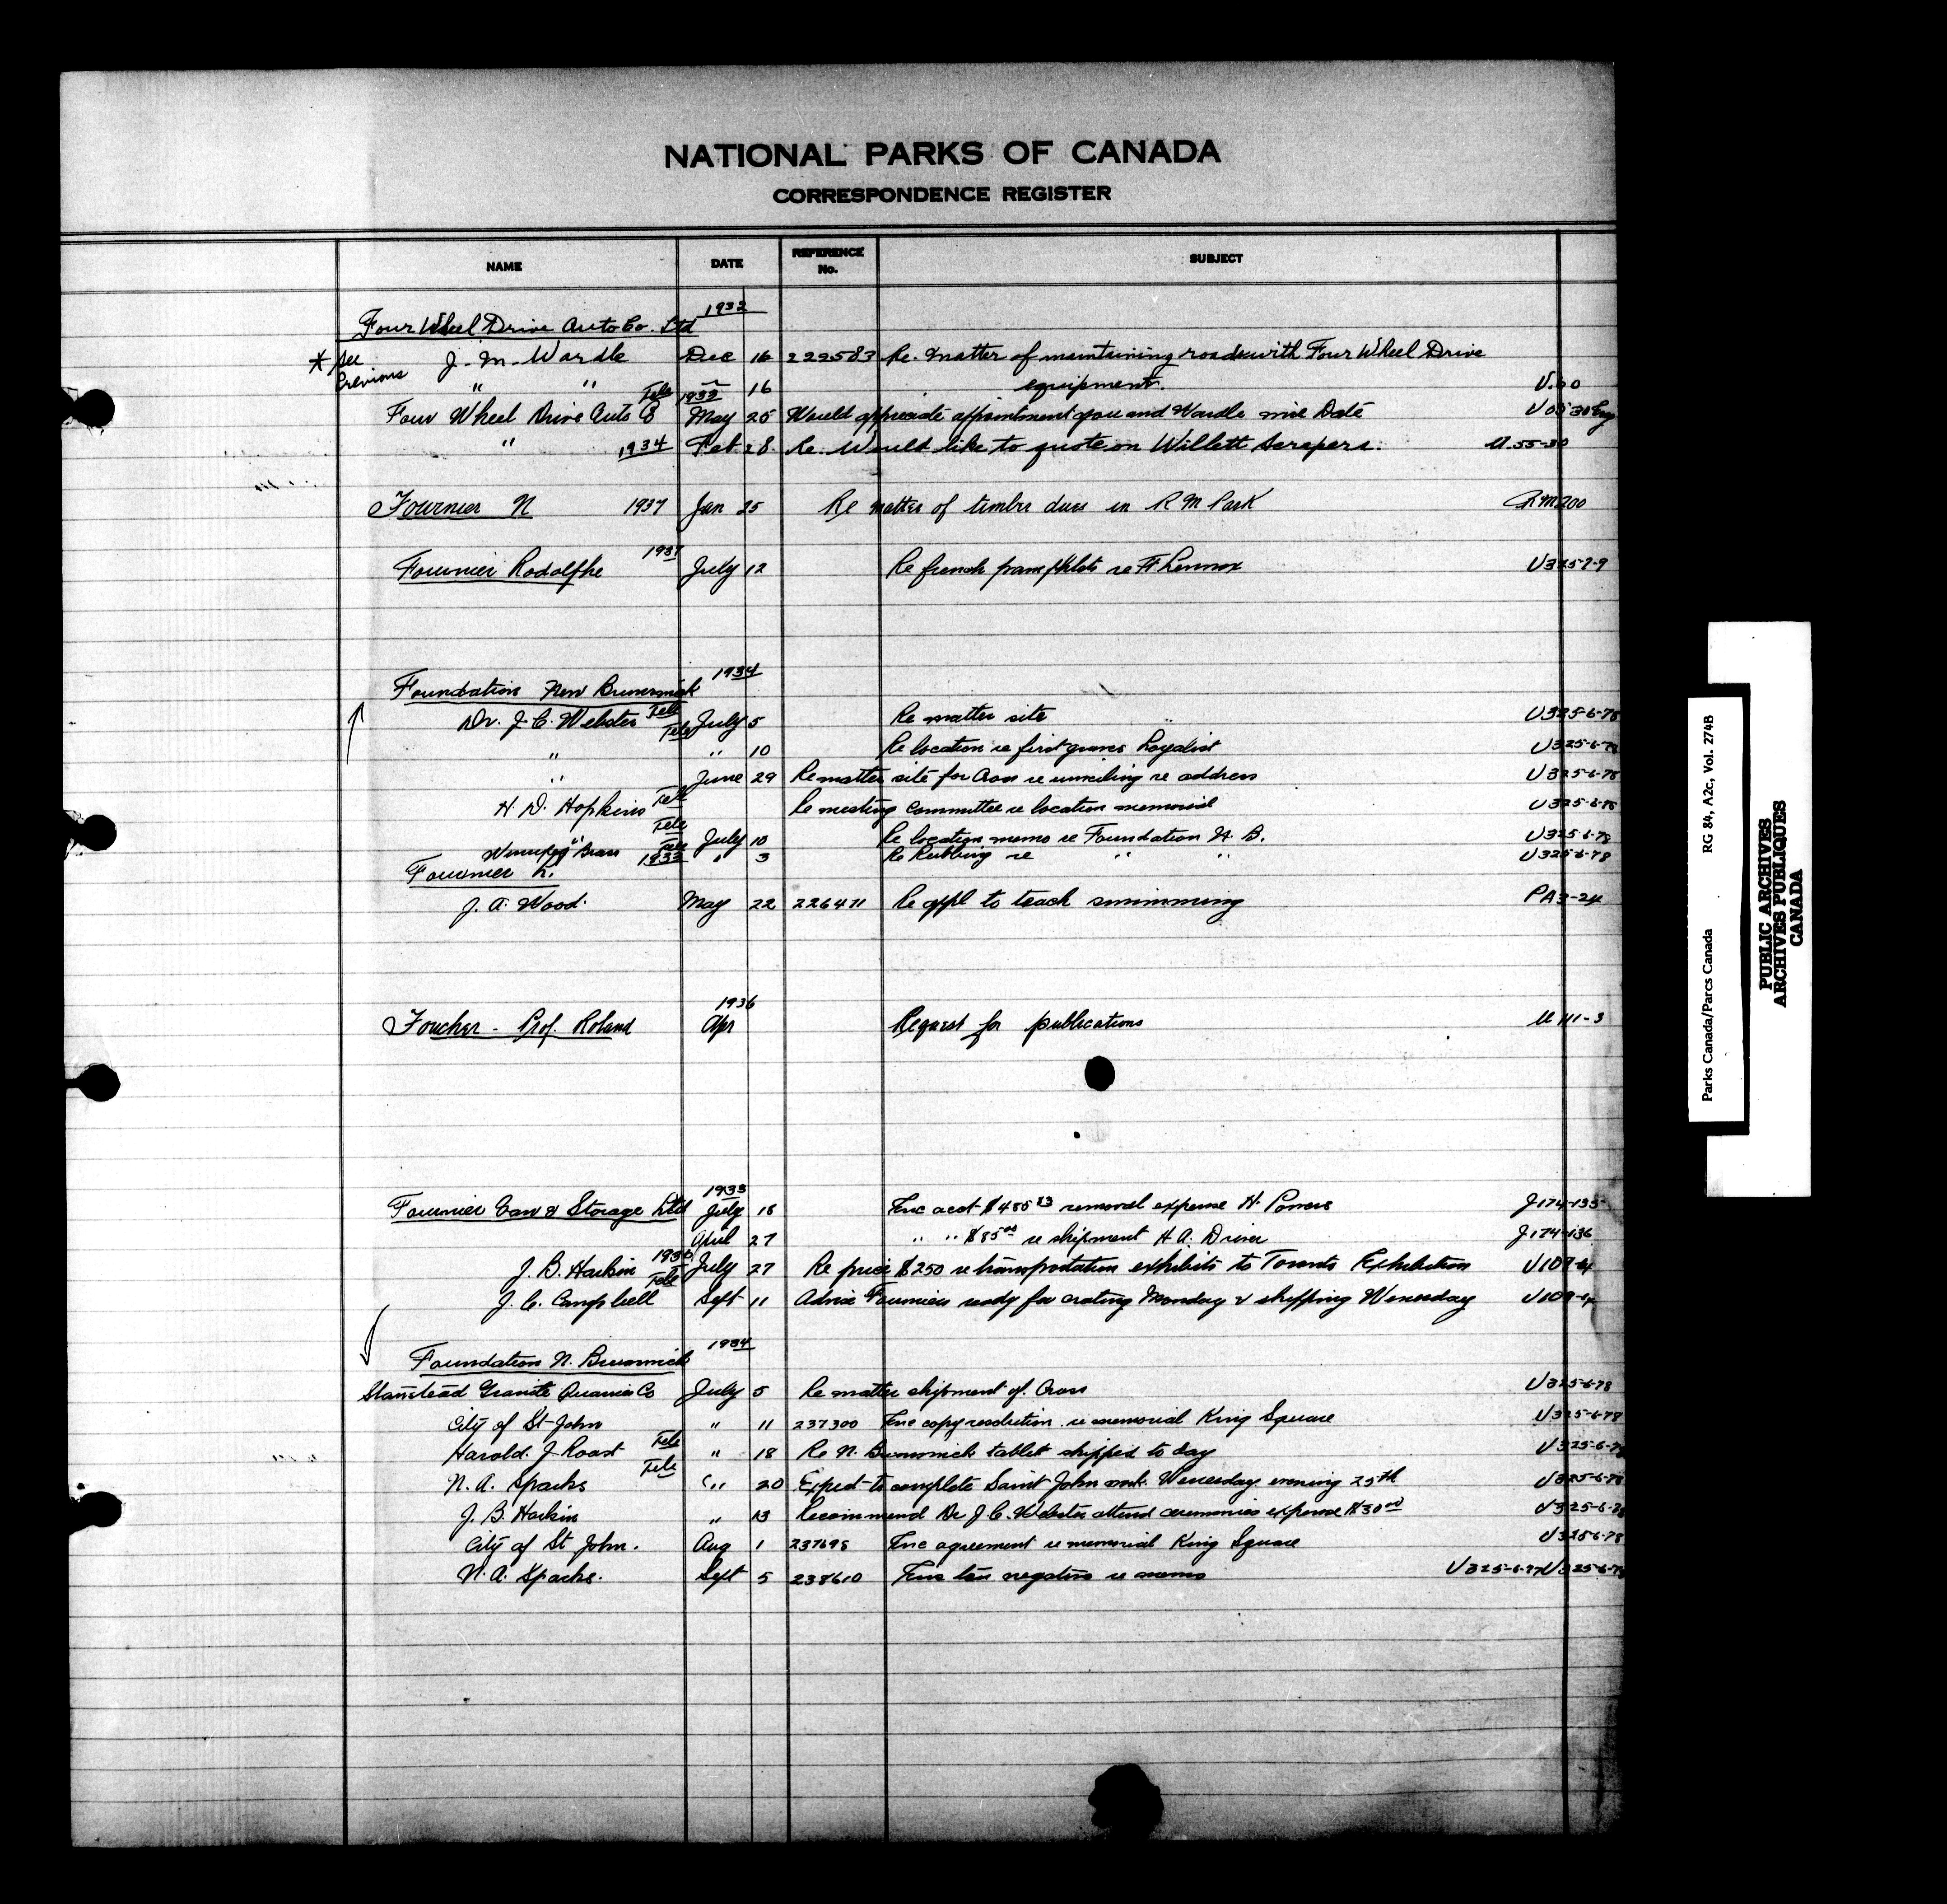 NATIONAL PARKS OF CANADA
CORRESPONDENCE REGISTER
NAME DATE REFERENCE No. SUBJECT
Four Wheel Drive Auto Co. Ltd 1932
* See Previous J. M. Wardle Dec 16 222583 Re. matter of maintaining roads with Four Wheel Drive
" " " 16 equipment. U.60
Four Wheel Drive Auto Co Tele 1933 May 25 Would appreciate appointment you and Wardle wire Date U 55-30 Eng
" 1934 Feb 28. Re. Would like to quote on Willett Scrapers. U.55-30
Fournier N 1937 Jan 25 Re matter of timber dues in R M Park RM200
Fournier Rodolphe 1937 July 12 Re french pamphlets re Ft Lennox U325-7-9
Foundation New Brunswick 1934
Dr. J. C. Webster Tele July 5 Re matter site U325-6-78
" Tele " 10 Re location re first graves Loyalist U325-6-78
" June 29 Re matter site for Cross re unveiling re address U325-6-78
H. D. Hopkins Tele Re meeting committee re location memorial U325-6-78
" Tele July 10 Re location memo re Foundation N. B. U325-6-78
Winnipeg Brass Tele " 3 Re Rubbing re " " U325-6-78
Fournier L. 1933
J. A. Wood. May 22 226471 Re appl to teach swimming PA3-24
Foucher - Prof. Roland 1936 Apr Request for publications U 111-3
Fournier Van & Storage Ltd 1933 July 18 Enc acct $485 13 removal expense H. Powers J174-135
April 27 " " $85 00 re shipment H A. Driver J174-136
J. B. Harkin 1930 July 27 Re price $250 re transportation exhibits to Toronto Exhibition U109-4
J. C. Campbell Tele Sept 11 Advise Fourniers ready for crating Monday & shipping Wenesday U109-4
Foundation N. Brunswick 1934
Stanstead Granite Quarries Co July 5 Re matter shipment of Cross U325-6-78
City of St John " 11 237300 Enc copy resolution re memorial King Square U325-6-78
Harold. J Roast Tele " 18 Re N. Brunswick tablet shipped to day U325-6-78
N. A. Sparks Tele " 20 Expect to complete Saint John work Wenesday evening 25th U325-6-78
J. B. Harkin " 13 Recommend Dr J. C. Webster attend ceremonies expense $30 00 U325-6-78
City of St John. Aug 1 237698 Enc agreement re memorial King Square U325-6-78
N. A. Sparks. Sept 5 238610 Enc ten negatives re memo U325-6-77 U325-6-78
Parks Canada/Parcs Canada RG 84, A2c, Vol. 274B
PUBLIC ARCHIVES
ARCHIVES PUBLIQUES
CANADA